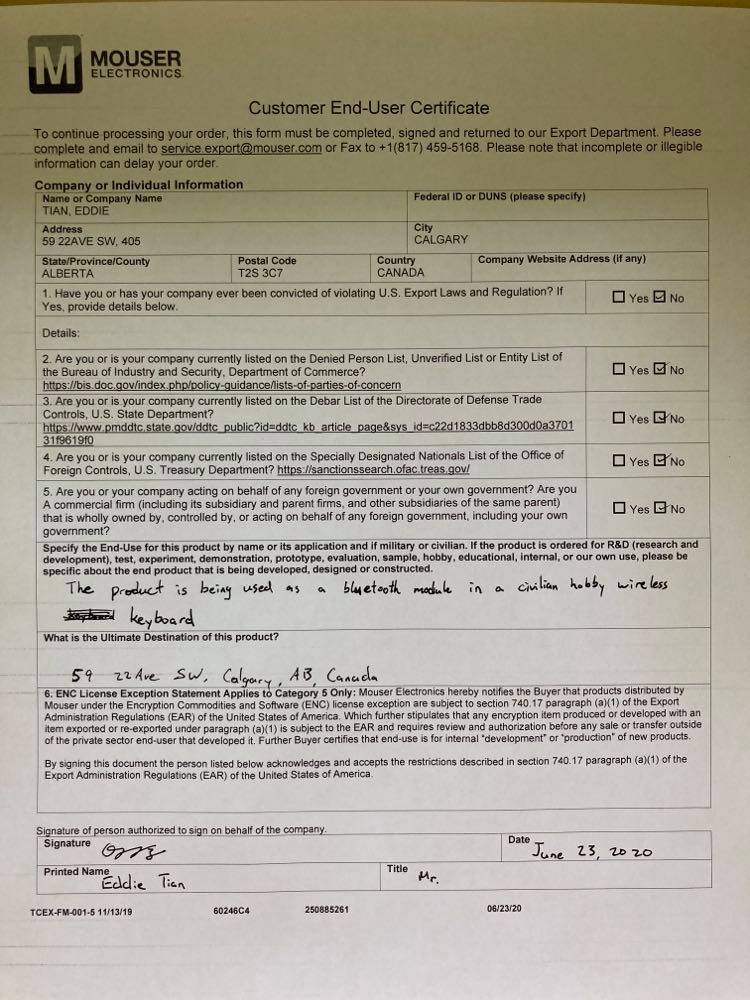 M MOUSER
ELECTRONICS
Customer End-User Certificate
To continue processing your order, this form must be completed, signed and returned to our Export Department. Please
complete and email to service.export@mouser.com or Fax to +1(817) 459-5168. Please note that incomplete or illegible
information can delay your order.
Company or Individual Information
Name or Company Name
TIAN, EDDIE
Federal ID or DUNS (please specify)
Address
59 22AVE SW, 405
City
CALGARY
State/Province/County
ALBERTA
Postal Code
T2S 3C7
Country
CANADA
Company Website Address (if any)
1. Have you or has your company ever been convicted of violating U.S. Export Laws and Regulation? If
Yes, provide details below.
☐ Yes ☑ No
Details:
2. Are you or is your company currently listed on the Denied Person List, Unverified List or Entity List of
the Bureau of Industry and Security, Department of Commerce?
https://bis.doc.gov/index.php/policy-guidance/lists-of-parties-of-concern
☐ Yes ☑ No
3. Are you or is your company currently listed on the Debar List of the Directorate of Defense Trade
Controls, U.S. State Department?
https://www.pmddtc.state.gov/ddtc_public?id=ddtc_kb_article_page&sys_id=c22d1833dbb8d300d0a3701
31f9619f0
☐ Yes ☑ No
4. Are you or is your company currently listed on the Specially Designated Nationals List of the Office of
Foreign Controls, U.S. Treasury Department? https://sanctionssearch.ofac.treas.gov/
☐ Yes ☑ No
5. Are you or your company acting on behalf of any foreign government or your own government? Are you
A commercial firm (including its subsidiary and parent firms, and other subsidiaries of the same parent)
that is wholly owned by, controlled by, or acting on behalf of any foreign government, including your own
government?
☐ Yes ☑ No
Specify the End-Use for this product by name or its application and if military or civilian. If the product is ordered for R&D (research and
development), test, experiment, demonstration, prototype, evaluation, sample, hobby, educational, internal, or our own use, please be
specific about the end product that is being developed, designed or constructed.
The product is being used as a bluetooth module in a civilian hobby wireless
keyboard
What is the Ultimate Destination of this product?
59 22 Ave SW, Calgary, AB, Canada
6. ENC License Exception Statement Applies to Category 5 Only: Mouser Electronics hereby notifies the Buyer that products distributed by
Mouser under the Encryption Commodities and Software (ENC) license exception are subject to section 740.17 paragraph (a)(1) of the Export
Administration Regulations (EAR) of the United States of America. Which further stipulates that any encryption item produced or developed with an
item exported or re-exported under paragraph (a)(1) is subject to the EAR and requires review and authorization before any sale or transfer outside
of the private sector end-user that developed it. Further Buyer certifies that end-use is for internal "development" or "production" of new products.
By signing this document the person listed below acknowledges and accepts the restrictions described in section 740.17 paragraph (a)(1) of the
Export Administration Regulations (EAR) of the United States of America.
Signature of person authorized to sign on behalf of the company.
Signature
Date
June 23, 2020
Printed Name
Eddie Tian
Title
Mr.
TCEX-FM-001-5 11/13/19 60246C4 250885261 06/23/20